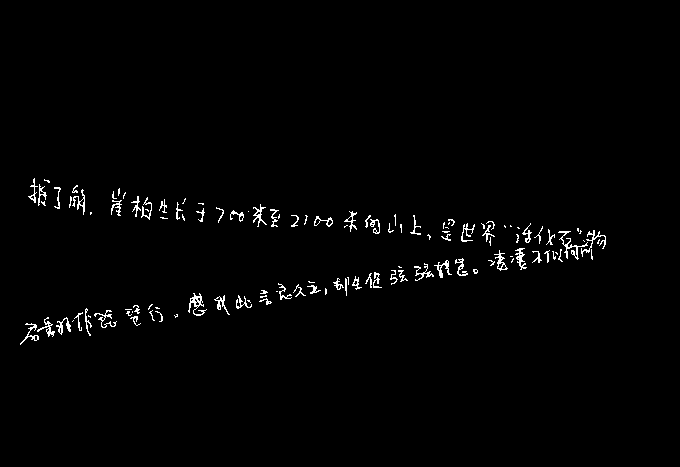 据了解,崖柏生长于700米至2100米的山上,是世界“活化石”物
君翻作琵琶行。感我此言良久立,却坐促弦弦转急。凄凄不似向前